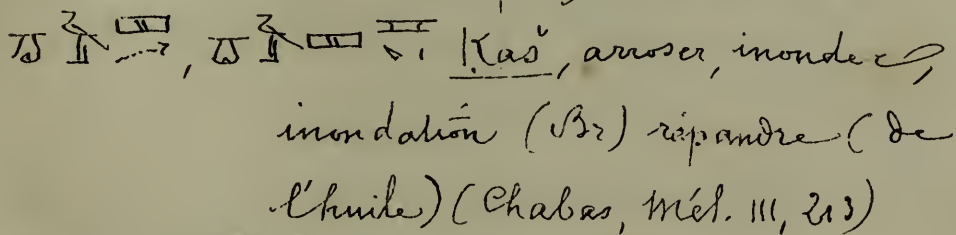 Kaš, arroser, inonder,
inondation (Br) répandre (de
l'huile) (Chabas, Mél. III, 213)